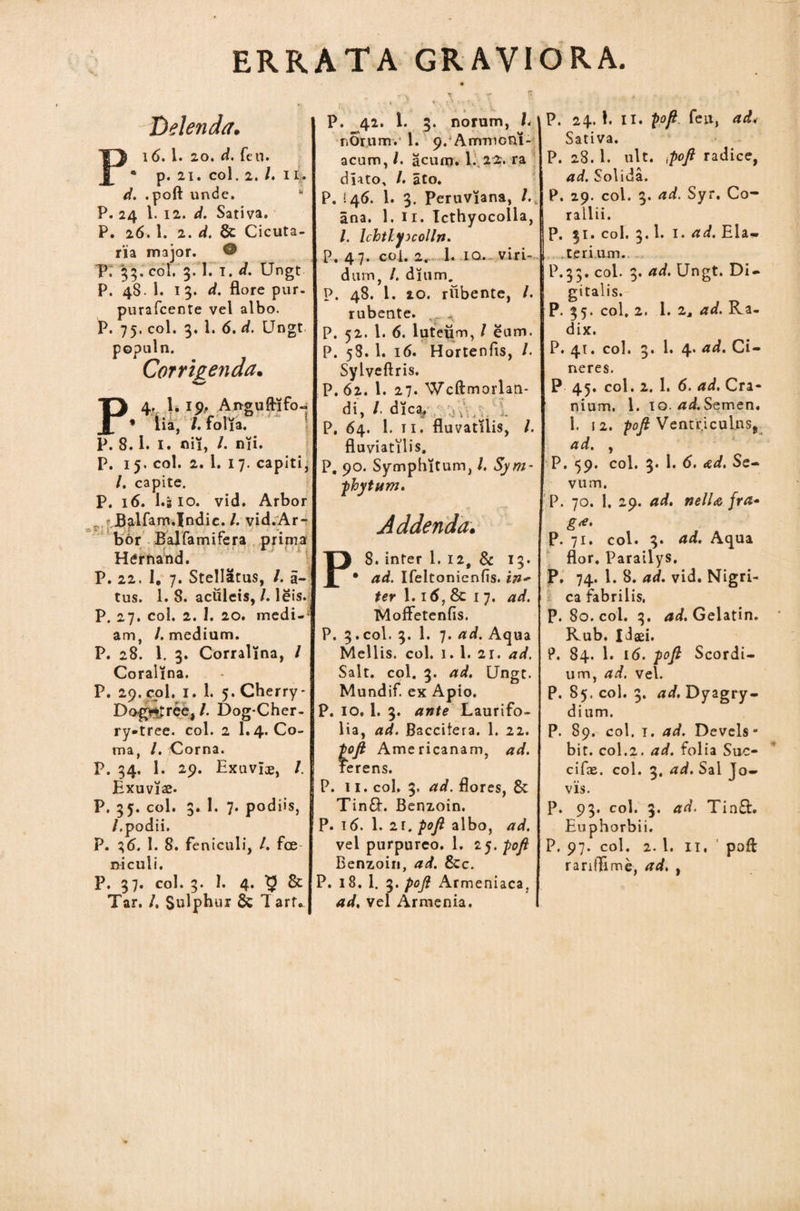 ERRATA GRAVIORA.
Delenda.
P 16. l. 20. d. ſeu.
* p. 21. col. 2. l. 11.
d. .poſt unde.
P. 24 l. 12. d. Sativa.
P. 26. l. 2. d. & Cicuta-
ria major.
P. 33. col. 3. l. 1. d. Ungt
P. 48. l. 13. d. flore pur-
puraſcente vel albo.
P. 75. col. 3. l. 6. d. Ungt
populn.
Corrigenda.
P 4. l. 19. Anguſtĭfo-
* lia, l. folĭa.
P. 8. l. 1. niĭ, l. nĭi.
P. 15. col. 2. l. 17. capiti,
l. capite.
P. 16. l. 10. vid. Arbor
Balſam.Indic. l. vid. Ar-
bor Balſamifera prima
Hernand.
P. 22. l. 7. Stellătus, l. ā-
tus. l. 8. acŭleis, l. lĕis.
P. 27. col. 2. l. 20. medi-
am, l. medium.
P. 28. l. 3. Corralĭna, l
Coralīna.
P. 29. col. 1. l. 5. Cherry-
Dogwtree, l. Dog-Cher-
ry-tree. col. 2 l. 4. Co-
ma, l. Corna.
P. 34. l. 29. Exuvīæ, l.
Exuvĭæ.
P. 35. col. 3. l. 7. podiis,
l. podii.
P. 36. l. 8. feniculi, l. fœ
niculi.
P. 37. col. 3. l. 4. ♀ &
Tar. l. Sulphur & Tart.
P. 42. l. 3. norum, l.
nŏrum. l. 9. Ammonĭ-
acum, l. ăcum. l. 22. ra
diato, l. āto.
P. 146. l. 3. Peruvĭana, l.
āna. l. 11. Icthyocolla,
l. Ichthyocolla.
P. 47. col. 2. l. 10. viri-
dum, l. dĭum.
P. 48. l. 20. rŭbente, l.
rubente.
P. 52. l. 6. luteŭm, l ĕum.
P. 58. l. 16. Hortenſis, l.
Sylveſtris.
P. 62. l. 27. Weſtmorlan-
di, l. dĭca.
P. 64. l. 11. fluvatĭlis, l.
fluviatĭlis.
P. 90. Symphĭtum, l. Sym-
phytum.
Addenda.
P 8. inter l. 12, & 13.
* ad. Iſeltonienſis. in-
ter l. 16, & 17. ad.
Moffetenſis.
P. 3. col. 3. l. 7. ad. Aqua
Mellis. col. 1. l. 21. ad.
Salt. col. 3. ad. Ungt.
Mundiſ. ex Apio.
P. 10. l. 3. ante Laurifo-
lia, ad. Baccifera. l. 22.
poſt Americanam, ad.
ferens.
P. 11. col. 3. ad. flores, &
Tinct. Benzoin.
P. 16. l. 21. poſt albo, ad.
vel purpureo. l. 25. poſt
Benzoin, ad. &c.
P. 18. l. 3. poſt Armeniaca,
ad. vel Armenia.
P. 24. l. 11. poſt ſeu, ad.
Sativa.
P. 28. l. ult. poſt radice,
ad. Solidâ.
P. 29. col. 3. ad. Syr. Co-
rallii.
P. 31. col. 3. l. 1. ad. Ela-
terium.
P. 33. col. 3. ad. Ungt. Di-
gitalis.
P. 35. col. 2. l. 2. ad. Ra-
dix.
P. 41. col. 3. l. 4. ad. Ci-
neres.
P 45. col. 2. l. 6. ad. Cra-
nium. l. 10. ad. Semen.
l. 12. poſt Ventriculns,
ad. ,
P. 59. col. 3. l. 6. ad. Se-
vum.
P. 70. l. 29. ad. nella fra-
gæ.
P. 71. col. 3. ad. Aqua
flor. Parailys.
P. 74. l. 8. ad. vid. Nigri-
ca fabrilis.
P. 80. col. 3. ad. Gelatin.
Rub. Idæi.
P. 84. l. 16. poſt Scordi-
um, ad. vel.
P. 85. col. 3. ad. Dyagry-
dium.
P. 89. col. 1. ad. Devels-
bit. col. 2. ad. folia Suc-
ciſæ. col. 3. ad. Sal Jo-
vis.
P. 93. col. 3. ad. Tinct.
Euphorbii.
P. 97. col. 2. l. 11. poſt
rariſſimè, ad. ,